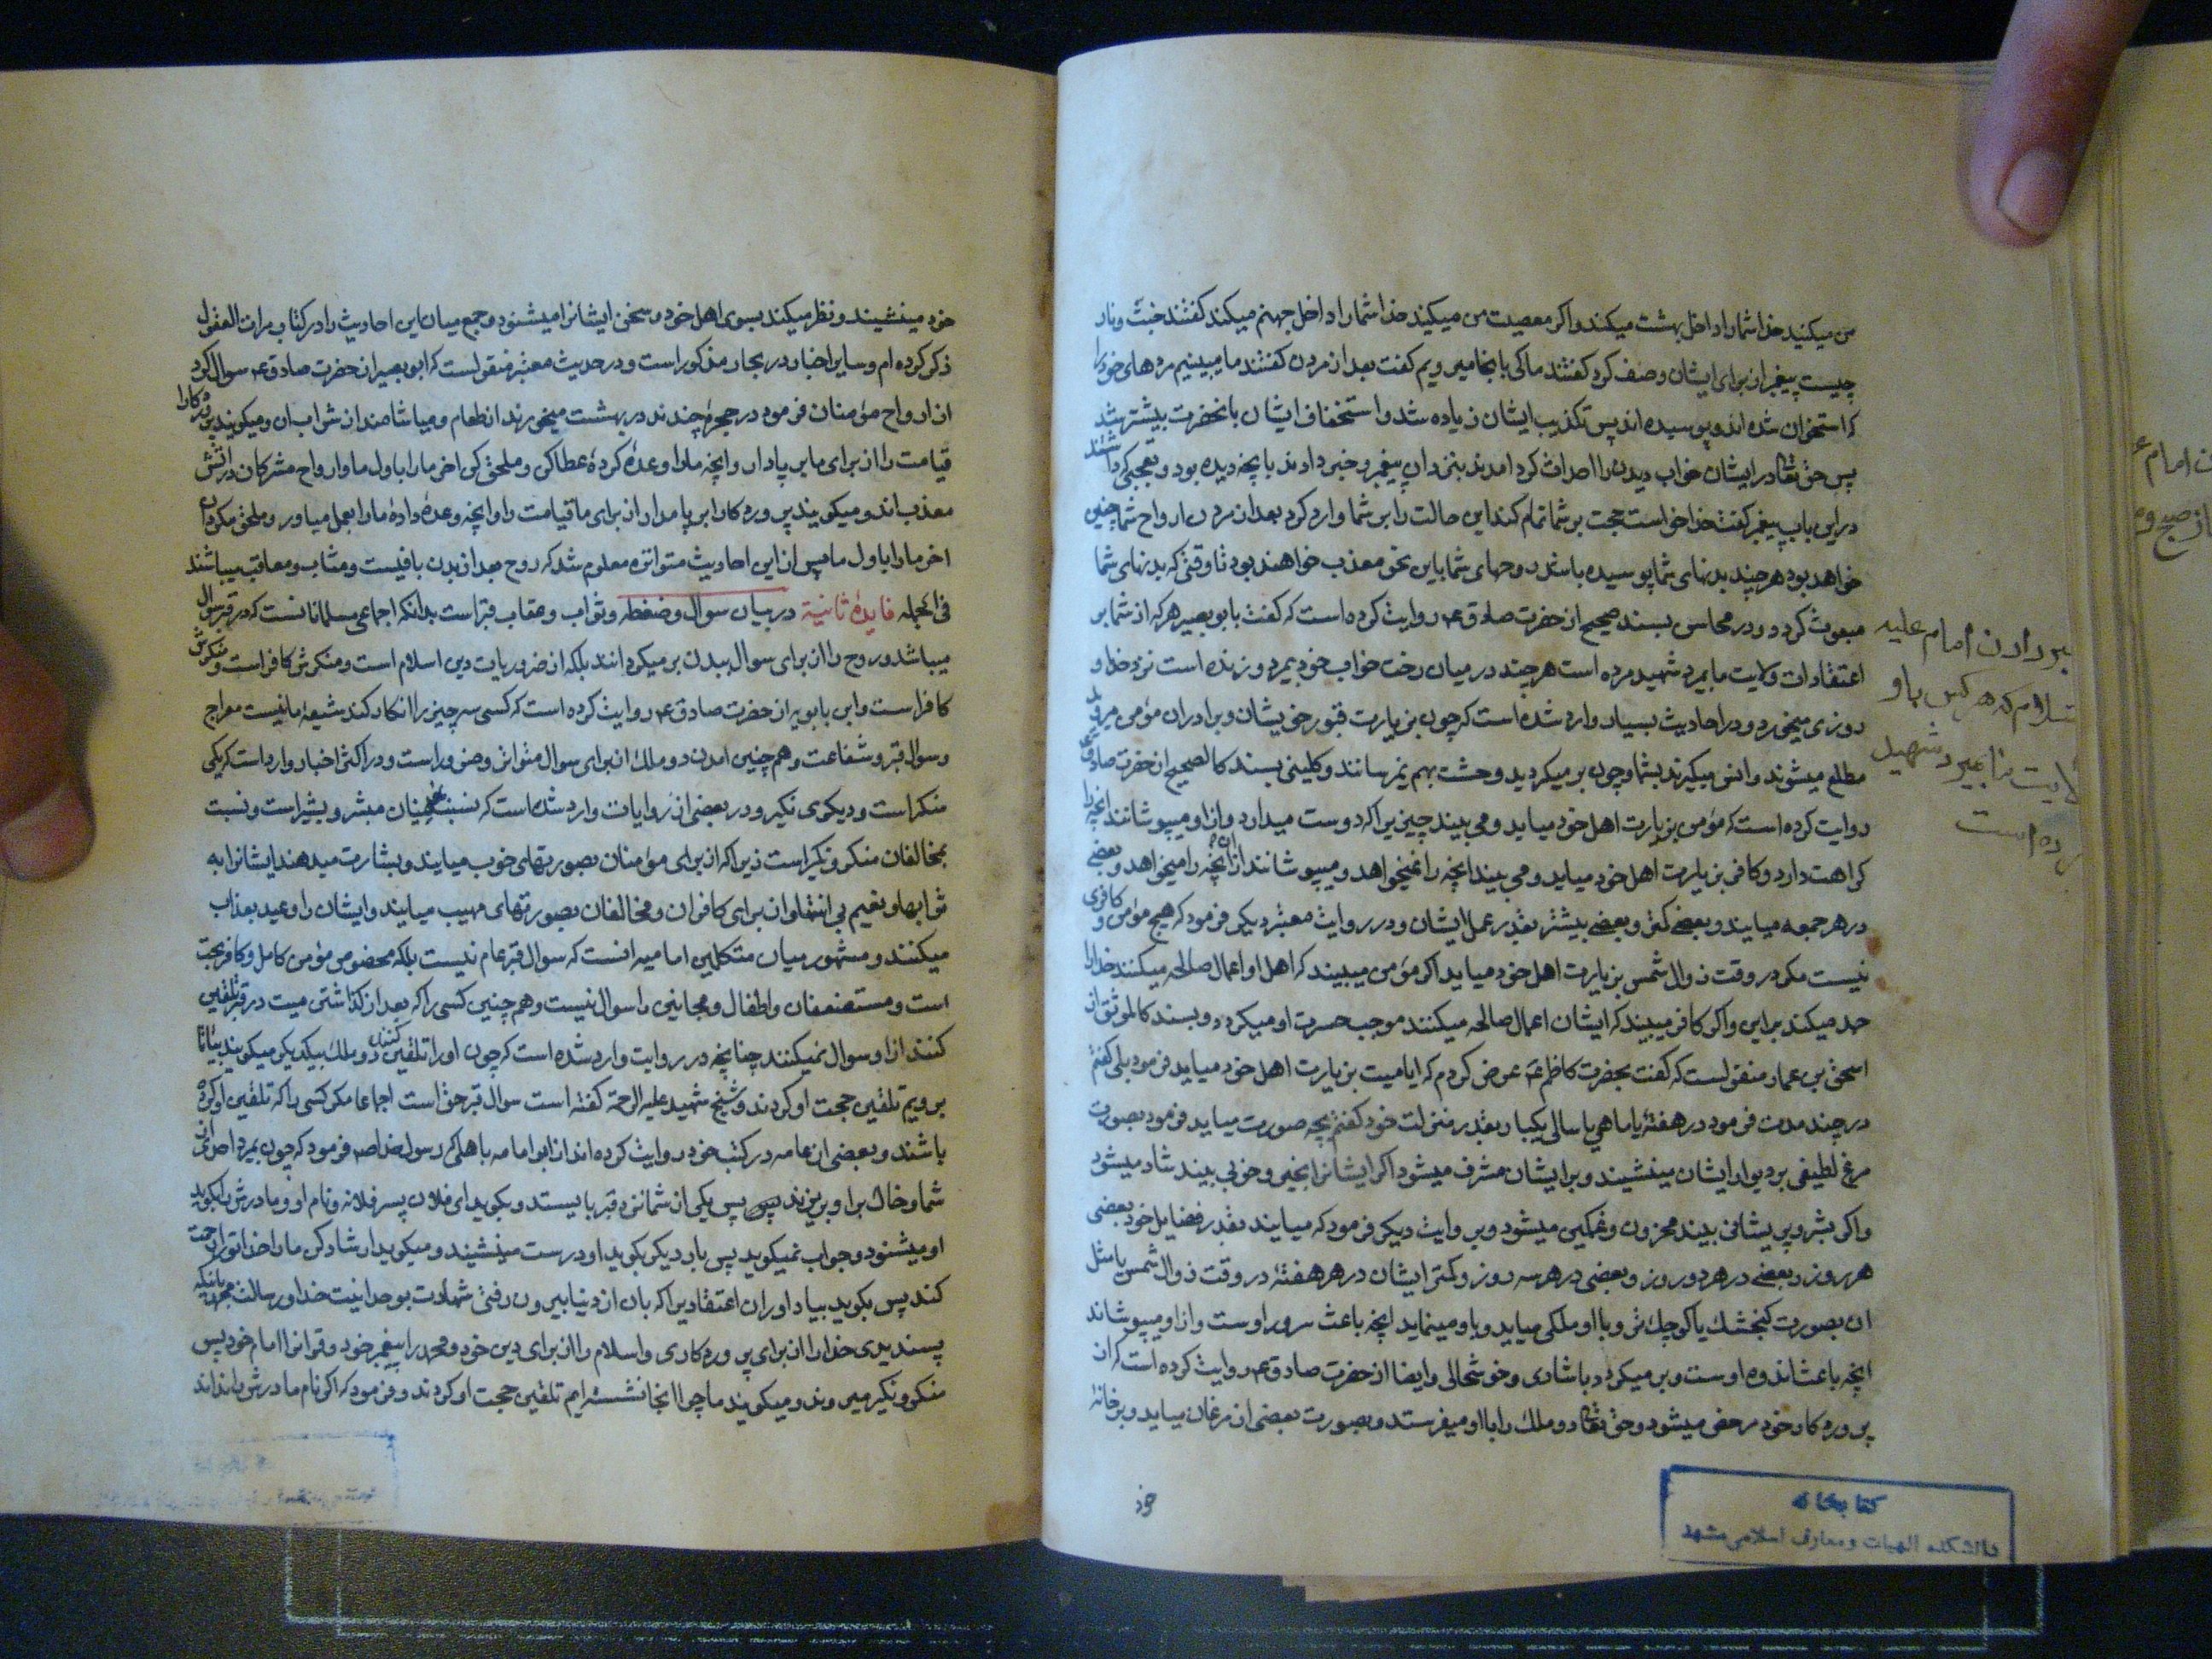 من میکنید خدا شما را داخل بهشت میکند و اکر معصیت من میکنید خدا شما را داخل جهنم میکند کفتند جنت و نار
چیست پیغمبر از برای ایشان وصف کرد کفتند ما کی بانجا میرویم کفت بعد از مردن کفتند ما میبینیم مردهای خود را
که استخوان شده اند و پوسیده اند پس تکذیب ایشان زیاده شد و استخفاف ایشان بانحضرت بیشتر شد
پس حق تعالی در ایشان خواب دیدن را احداث کرد امدند بنزد ان پیغمبر و خبر دادند بانچه دیده بود و تعجبی که داشتند
در این باب پیغمبر کفت خدا خواست حجت بر شما تمام کند این حالت را بر شما وارد کرد بعد از مردن ارواح شما چنین
خواهد بود هر چند بدنهای شما پوسیده باشند روحهای شما باین نحو معذب خواهند بود تا وقتی که بدنهای شما
مبعوث کردد و در محاسن بسند صحیح از حضرت صادق ع روایت کرده است که کفت بابوبصیر هر که از شما بر
اعتقادات ولایت ما بمیرد شهید مرده است هر چند در میان رخت خواب خود بمیرد و زنده است نزد خدا و
روزی میخورد و در احادیث بسیار وارد شده است که چون بزیارت قبور خویشان و برادران مؤمن میروید
مطلع میشوند و انس میکیرند بشما و چون بر میکردید وحشت بهم میرسانند و کلینی بسند کالصحیح از حضرت صادق ع
روایت کرده است که مؤمن بزیارت اهل خود میاید و می بیند چیزیرا که دوست میدارد و از او میپوشانند انچه را
کراهت دارد و کافر بزیارت اهل خود میاید و می بیند انچه را نمیخواهد و میپوشانند از او انچه را میخواهد و بعضی
در هر جمعه میایند و بعضی کمتر و بعضی بیشتر بقدر عمل ایشان و در روایت معتبر دیکر فرمود که هیچ مؤمن و کافری
نیست مکر در وقت زوال شمس بزیارت اهل خود میاید اکر مؤمن میبیند که اهل او اعمال صالحه میکنند خدا را
حمد میکند بر این و اکر کافر میبیند که ایشان اعمال صالحه میکنند موجب حسرت او میکردد و بسند کالموثق از
اسحق بن عمار منقولست که کفت بحضرت کاظم ع عرض کردم که ایا میت بزیارت اهل خود میاید فرمود بلی کفتم
در چند مدت فرمود در هفتهٔ یا ماهی یا سالی یکبار بقدر منزلت خود کفتم بچه صورت میاید فرمود بصورت
مرغ لطیفی بر دیوار ایشان مینشیند و بر ایشان مشرف میشود اکر ایشانرا بخیر و خوبی بیند شاد میشود
واکر بشر و پریشانی بیند محزون و غمکین میشود و بروایت دیکر فرمود که میایند بقدر فضایل خود بعضی
هر روز و بعضی در هر دو روز و بعضی در هر سه روز و کمتر ایشان در هر هفتهٔ در وقت زوال شمس یا مثل
ان بصورت کنجشك یا کوچك تر و با او ملکی میاید و باو مینماید انچه باعث سرور اوست و از او میپوشاند
انچه باعث اندوه اوست و بر میکردد با شادی و خوشحالی و ایضا از حضرت صادق ع روایت کرده است که از
پروردکار خود مرخص میشود و حق تعالی دو ملك را با او میفرستد و بصورت بعضی از مرغان میاید و بر خانهٔ
خود
امام علیه
السلام که هر کس با و
ولایت ما بمیرد شهید
مرده است
کتابخانه
دانشکده الهیات و معارف اسلامی مشهد
خود مینشیند و نظر میکند بسوی اهل خود و سخن ایشانرا میشنود و جمع میان این احادیث را در کتاب مرات العقول
ذکر کرده ام و سایر اخبار در بحار مذکور است و در حدیث معتبر منقولست که ابو بصیر از حضرت صادق ع سوال کرد
از ارواح مؤمنان فرمود در حجرهٔ چندند در بهشت میخورند از طعام و میاشامند از شراب ان و میکویند پروردکارا
قیامت را از برای ما بر پا دار و انچه ما را وعده کردهٔ عطا کن و ملحق کن اخر ما را باول ما و ارواح مشرکان در اتش
معذب اند و میکویند پروردکارا بر پا مدار از برای ما قیامت را و انچه وعدهٔ دادهٔ ما را بعمل میاور و ملحق مکردان
اخر ما را باول ما پس از این احادیث متواتره معلوم شد که روح بعد از بدن باقیست و مثاب و معاقب میباشند
فی الجمله فایدهٔ ثانیة در بیان سوال و ضغطه و ثواب و عقاب قبر است بدانکه اجماعی مسلمانانست که در قبر سوال
میباشد و روح را از برای سوال ببدن بر میکردانند بلکه از ضروریات دین اسلام است و منکرش کافر است و منکرش
کافر است و ابن بابویه از حضرت صادق ع روایت کرده است که کسی سه چیز را انکار کند شیعهٔ ما نیست معراج
وسوال قبر و شفاعت و هم چنین امدن دو ملك از برای سوال متواتر و ضرور است و در اکثر اخبار وارد است که یکی
منکر است و دیکری نکیر و در بعضی از روایات وارد شده است که نسبت بمؤمنان مبشر و بشیر است و نسبت
بمخالفان منکر و نکیر است زیرا که از برای مؤمنان بصورتهای خوب میایند و بشارت میدهند ایشانرا به
ثوابها و نعیم بی انتها و از برای کافران و مخالفان بصورتهای مهیب میایند و ایشان را وعید بعذاب
میکنند و مشهور میان متکلمین امامیه انست که سوال قبر عام نیست بلکه مخصوص مؤمن کامل و کافر بحت
است و مستضعفان و اطفال و مجانین را سوال نیست و هم چنین کسی را که بعد از کذاشتن میت در قبر تلقین
کنند از او سوال نمیکنند چنانچه در روایت وارد شده است که چون او را تلقین کنند دو ملك بیکدیکر میکویند بیا تا
برویم تلقین حجت او کردند و شیخ شهید علیه الرحمة کفته است سوال قبر حق است اجماعا مکر کسی را که تلقین او کرده
باشند و بعضی از عامه در کتب خود روایت کرده اند از ابو امامه باهلی که رسول خدا ص فرمود که چون بمیرد احدی از
شما و خاك بر او بریزند پس یکی از شما نزد قبر بایستد و بکوید ای فلان پسر فلانه و نام او و مادرش را بکوید
او میشنود و جواب نمیکوید پس بار دیکر بکوید او درست مینشیند و میکوید ارشاد کن ما را خدا تو را رحمت
کند پس بکوید بیاد اور ان اعتقادیرا که بان از دنیا بیرون رفتی شهادت بوحدانیت خدا و رسالت محمد و بانیکه
پسندیدی خدا را از برای پروردکاری و اسلام را از برای دین خود و محمد را پیغمبر خود و قرانرا امام خود پس
منکر و نکیر میروند و میکویند ما چرا اینجا نشسته ایم تلقین حجت او کردند و فرمود که اکر نام مادرش را نداند